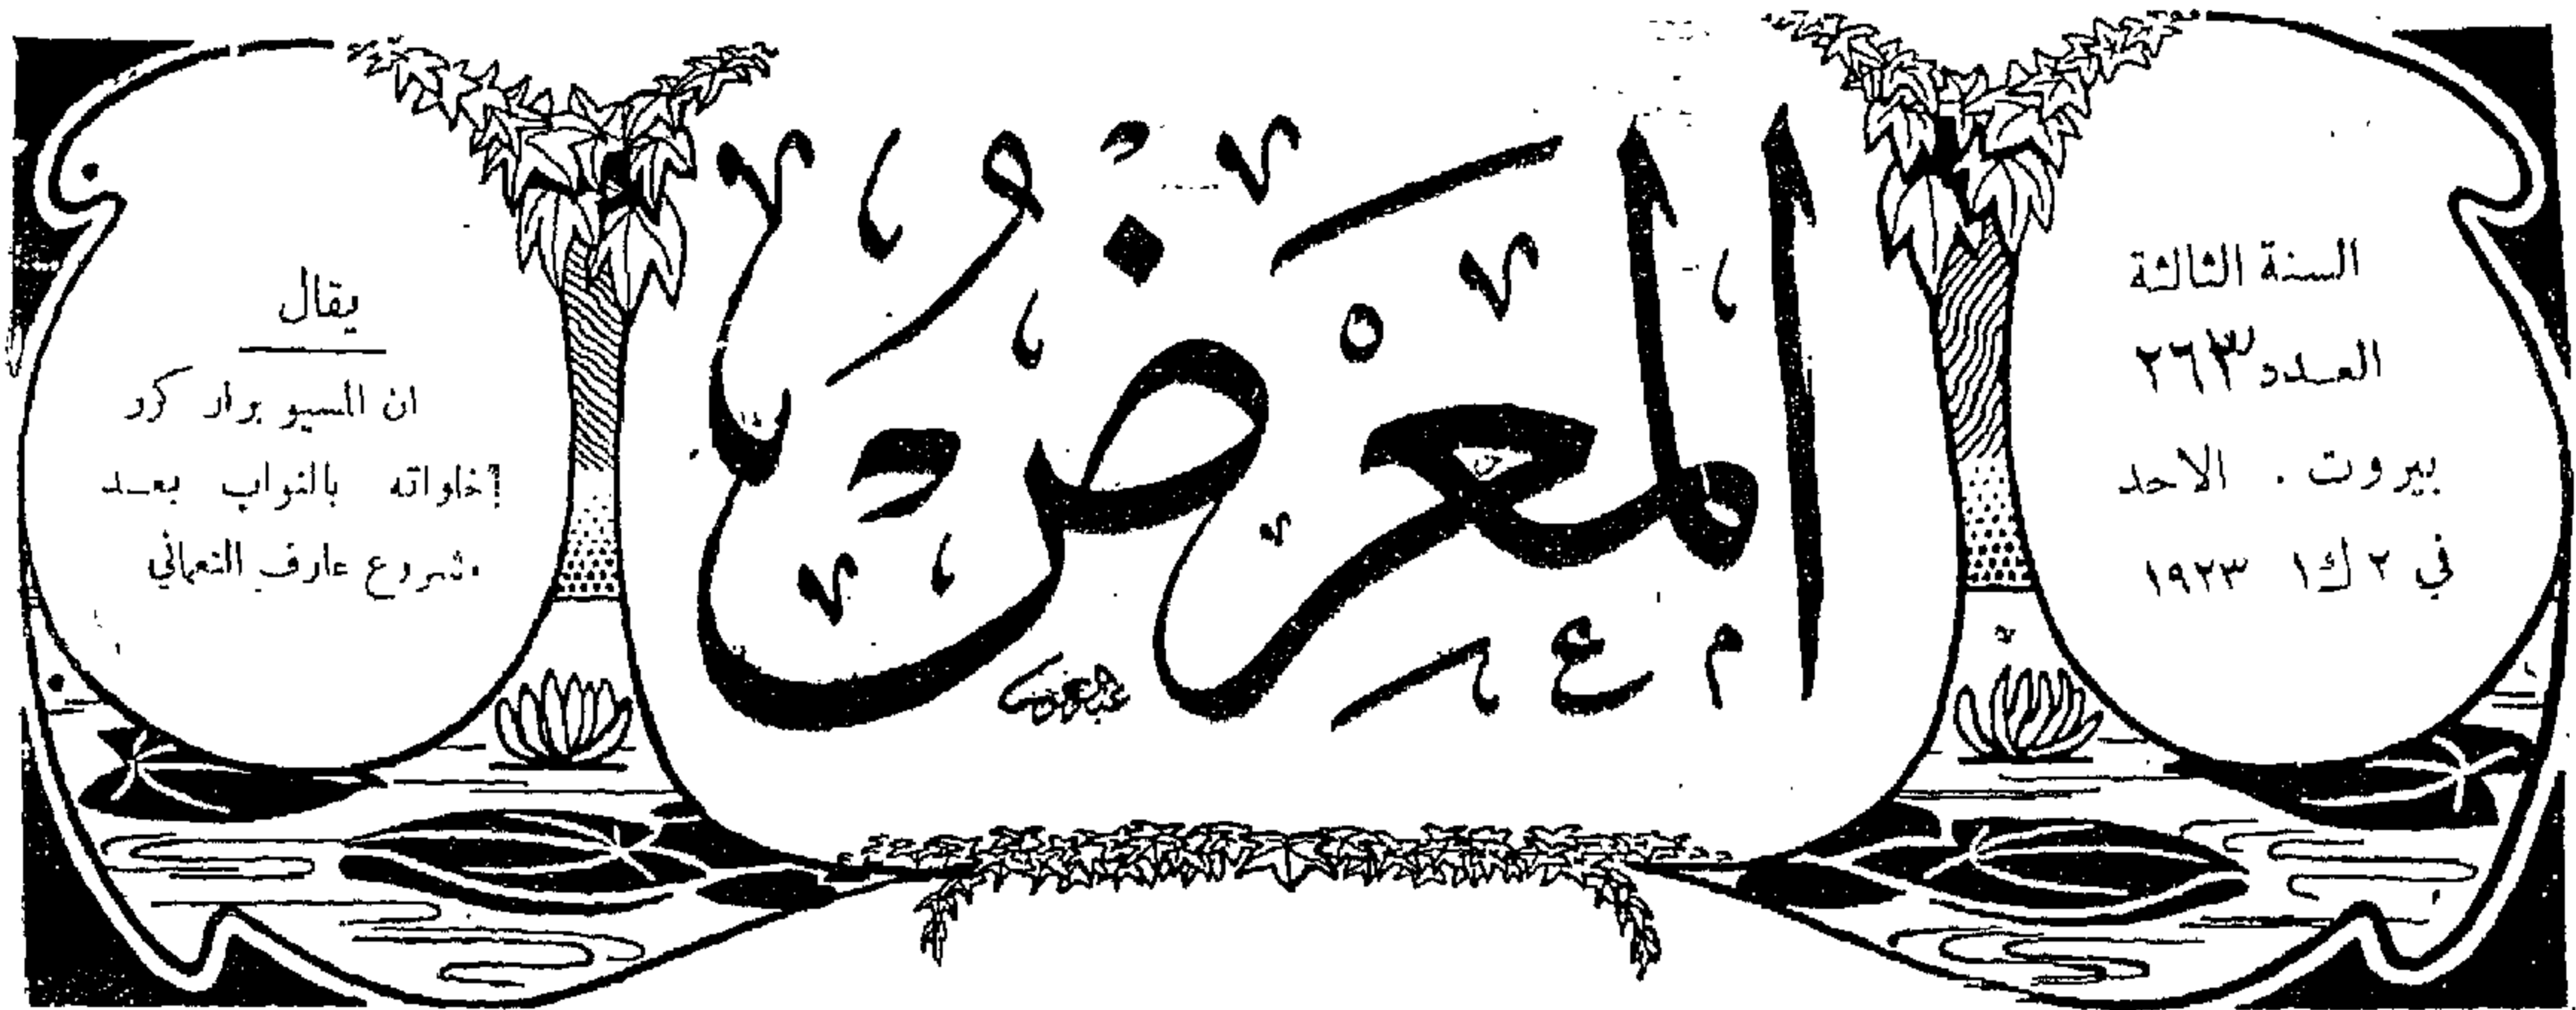 السنة الثالثة
العدد ٢٦٣
بيروت . الاحد
في ٢ ك١ ١٩٢٣
المعرض
يقال
ان المسيو برار كرر
خلواته بالنواب بعد
مشروع عارف النعماني